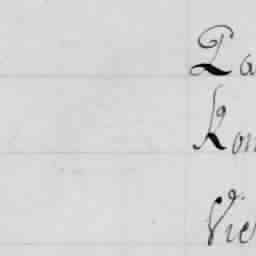 La
Kon
Vie